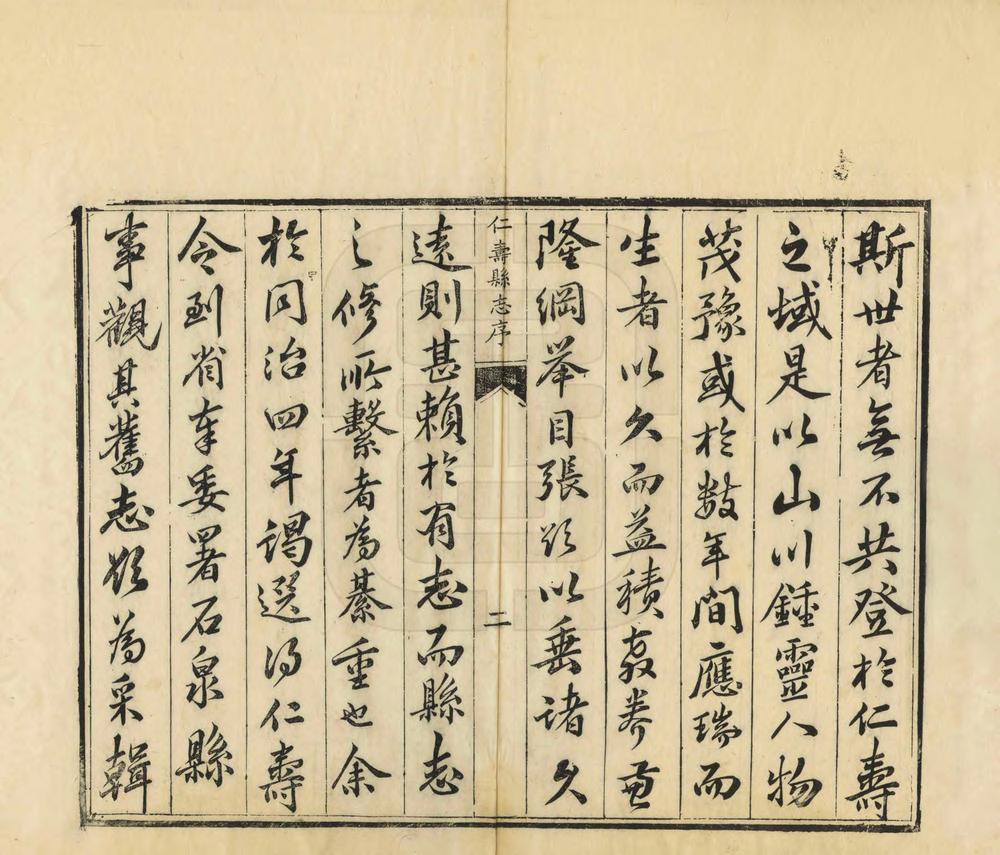 斯世者無不共登於仁壽
之域是以山川鍾靈人物
茂豫或於數年間應瑞而
生者以久而益積教養兼
隆綱舉目張欲以垂諸久
仁壽縣志序
二
遠則甚賴於有志而縣志
之修所繫者為綦重也余
於同治四年謁選得仁壽
令到省奉委署石泉縣
事觀其舊志欲為采輯